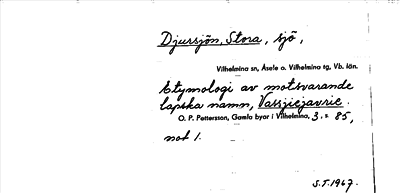 Djursjön, Stora, sjö,
Vilhelmina sn, Åsele o. Vilhelmina tg, Vb. län.
Etymologi av motsvarande
lapska namn, Vassjiejavrie.
O. P. Pettersson, Gamla byar i Vilhelmina, 3, s. 85,
not 1.
S.T. 1967.